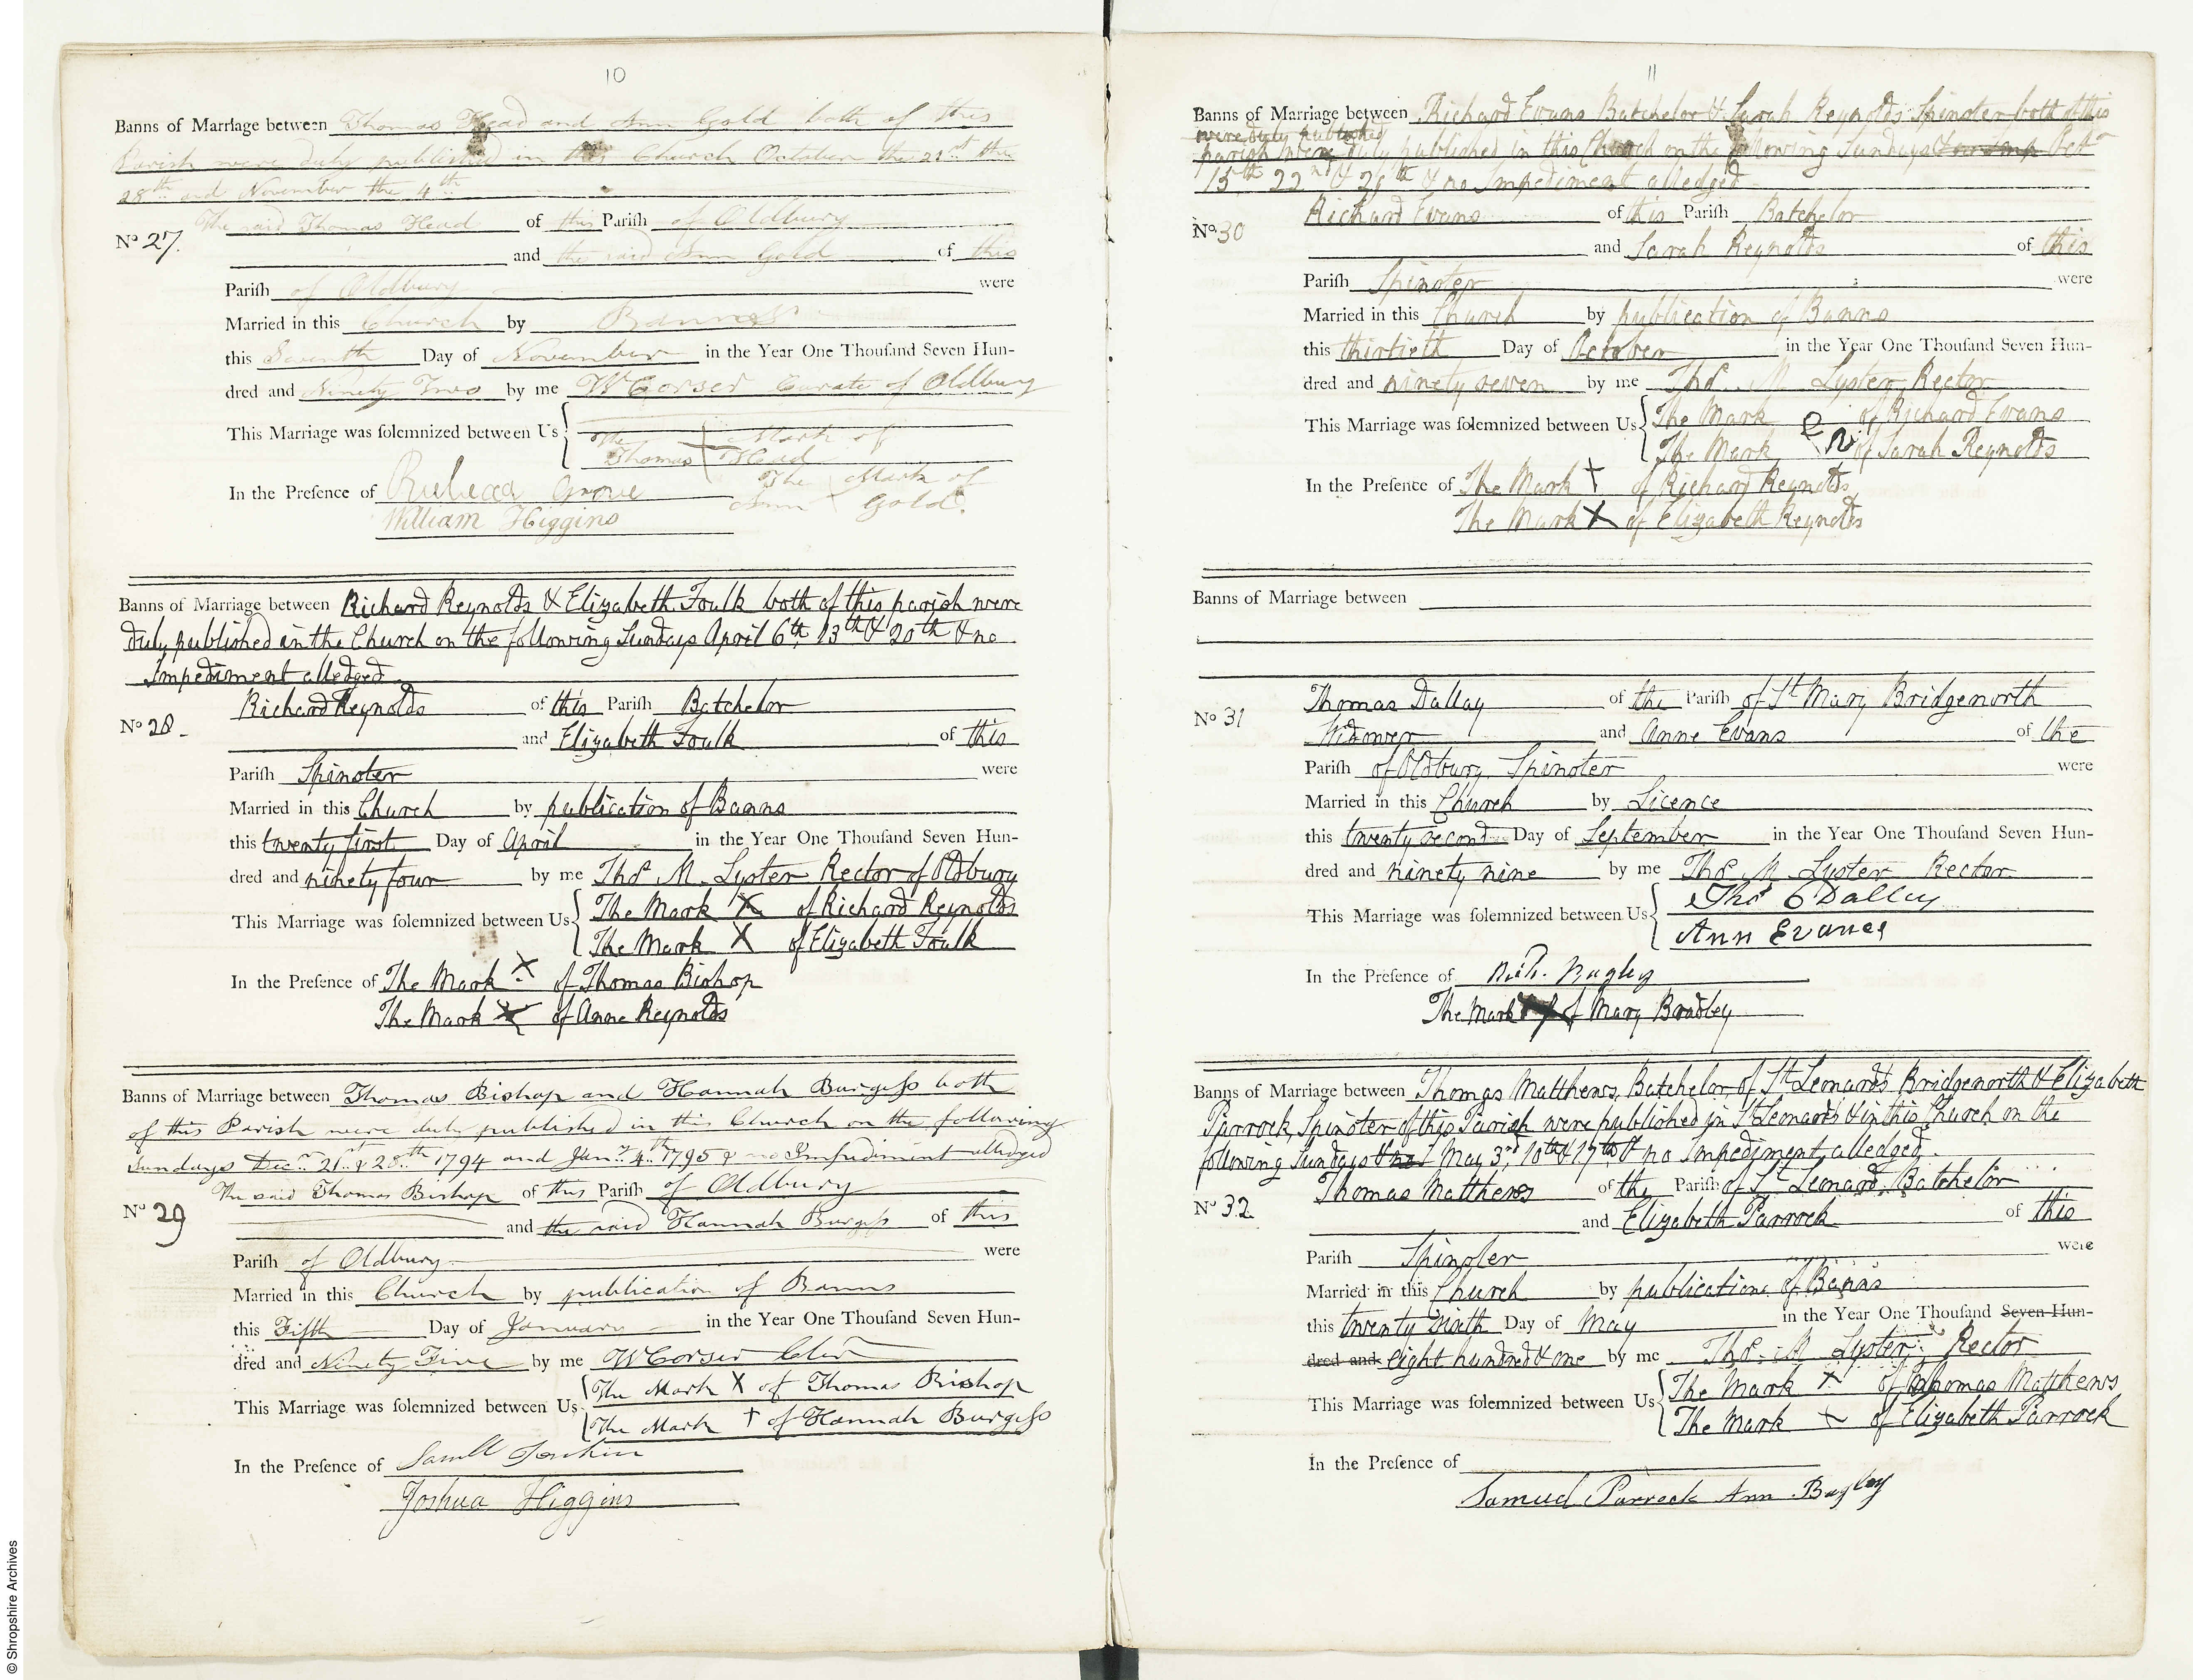 10
Banns of Marriage between Thomas Head and Ann Gold both of this
Parish were duly published in this Church October the 21st the
28th and November the 4th
The said Thomas Head of this Parish of Oldbury
No 27.
and the said Ann Gold of this
Parish of Oldbury were
Married in this Church by Banns
this Seventh Day of November in the Year One Thousand Seven Hun-
dred and Ninety Two by me W Corser Curate of Oldbury
This Marriage was solemnized between Us
The Mark of
Thomas Head
The Mark of
Ann Gold.
In the Presence of Grove
William Higgins
Banns of Marriage between Richard Reynolds & Elizabeth Foulk both of this parish were
duly published in the Church on the following Sundays April 6th 13th & 20th & no
Impediment alledged
Richard Reynolds of this Parish Batchelor
No 28
and Elizabeth Foulk of this
Parish Spinster were
Married in this Church by publication of Banns
this twenty first Day of April in the Year One Thousand Seven Hun-
dred and ninety four by me Thos. M. Lyster Rector of Oldbury
This Marriage was solemnized between Us The Mark X of Richard Reynolds
The Mark X of Elizabeth Foulk
In the Presence of The Mark X of Thomas Bishop
The Mark X of Anne Reynolds
Banns of Marriage between Thomas Bishop and Hannah Burgess both
of this Parish were duly published in this Church on the following
Sundays Decr. 21st & 28th 1794 and Jany. 4th 1795 & no Impediment alledged
The said Thomas Bishop of this Parish of Oldbury
No 29
and the said Hannah Burgess of this
Parish of Oldbury were
Married in this Church by publication of Banns
this Fifth Day of January in the Year One Thousand Seven Hun-
dred and Ninety Five by me W Corser
This Marriage was solemnized between Us The Mark X of Thomas Bishop
The Mark † of Hannah Burgess
In the Presence of Samll
Joshua Higgins
11
Banns of Marriage between Richard Evans Batchelor & Sarah Reynolds Spinster both of this
were duly published
parish were duly published in this Church on the following Sundays Octr
15th 22nd & 29th & no Impediment alledged
Richard Evans of this Parish Batchelor
No. 30
and Sarah Reynolds of this
Parish Spinster were
Married in this Church by publication of Banns
this thirtieth Day of October in the Year One Thousand Seven Hun-
dred and ninety seven by me Thos. M Lyster Rector
This Marriage was solemnized between Us The Mark of Richard Evans
The Mark of Sarah Reynolds
In the Presence of The Mark † of Richard Reynolds
The Mark X of Elizabeth Reynolds
Banns of Marriage between
Thomas Dallay of the Parish of St Mary Bridgenorth
No 31
Widower and Anne Evans of the
Parish of Oldbury Spinster were
Married in this Church by Licence
this twenty second Day of September in the Year One Thousand Seven Hun-
dred and ninety nine by me Thos M Lyster Rector
This Marriage was solemnized between Us Thos Dalley
Ann Evanes
In the Presence of Bagley
The Mark of Mary Bradley
Banns of Marriage between Thomas Matthews, Batchelor, of St Leonards Bridgenorth & Elizabeth
Parrock Spinster of this Parish were published in St Leonards & in this Church on the
following Sundays May 3rd 10th & 17th & no Impediment alledged.
Thomas Matthews of the Parish of St Leonard, Batchelor
No 32
and Elizabeth Parrock of this
Parish Spinster were
Married in this Church by publication of Banns
this twenty sixth Day of May in the Year One Thousand Seven Hun-
dred and eight hundred & one by me Thos. M Lyster Rector
This Marriage was solemnized between Us The Mark X of Thomas Matthews
The Mark X of Elizabeth Parrock
In the Presence of
Samuel Parrock Ann Bagley
© Shropshire Archives